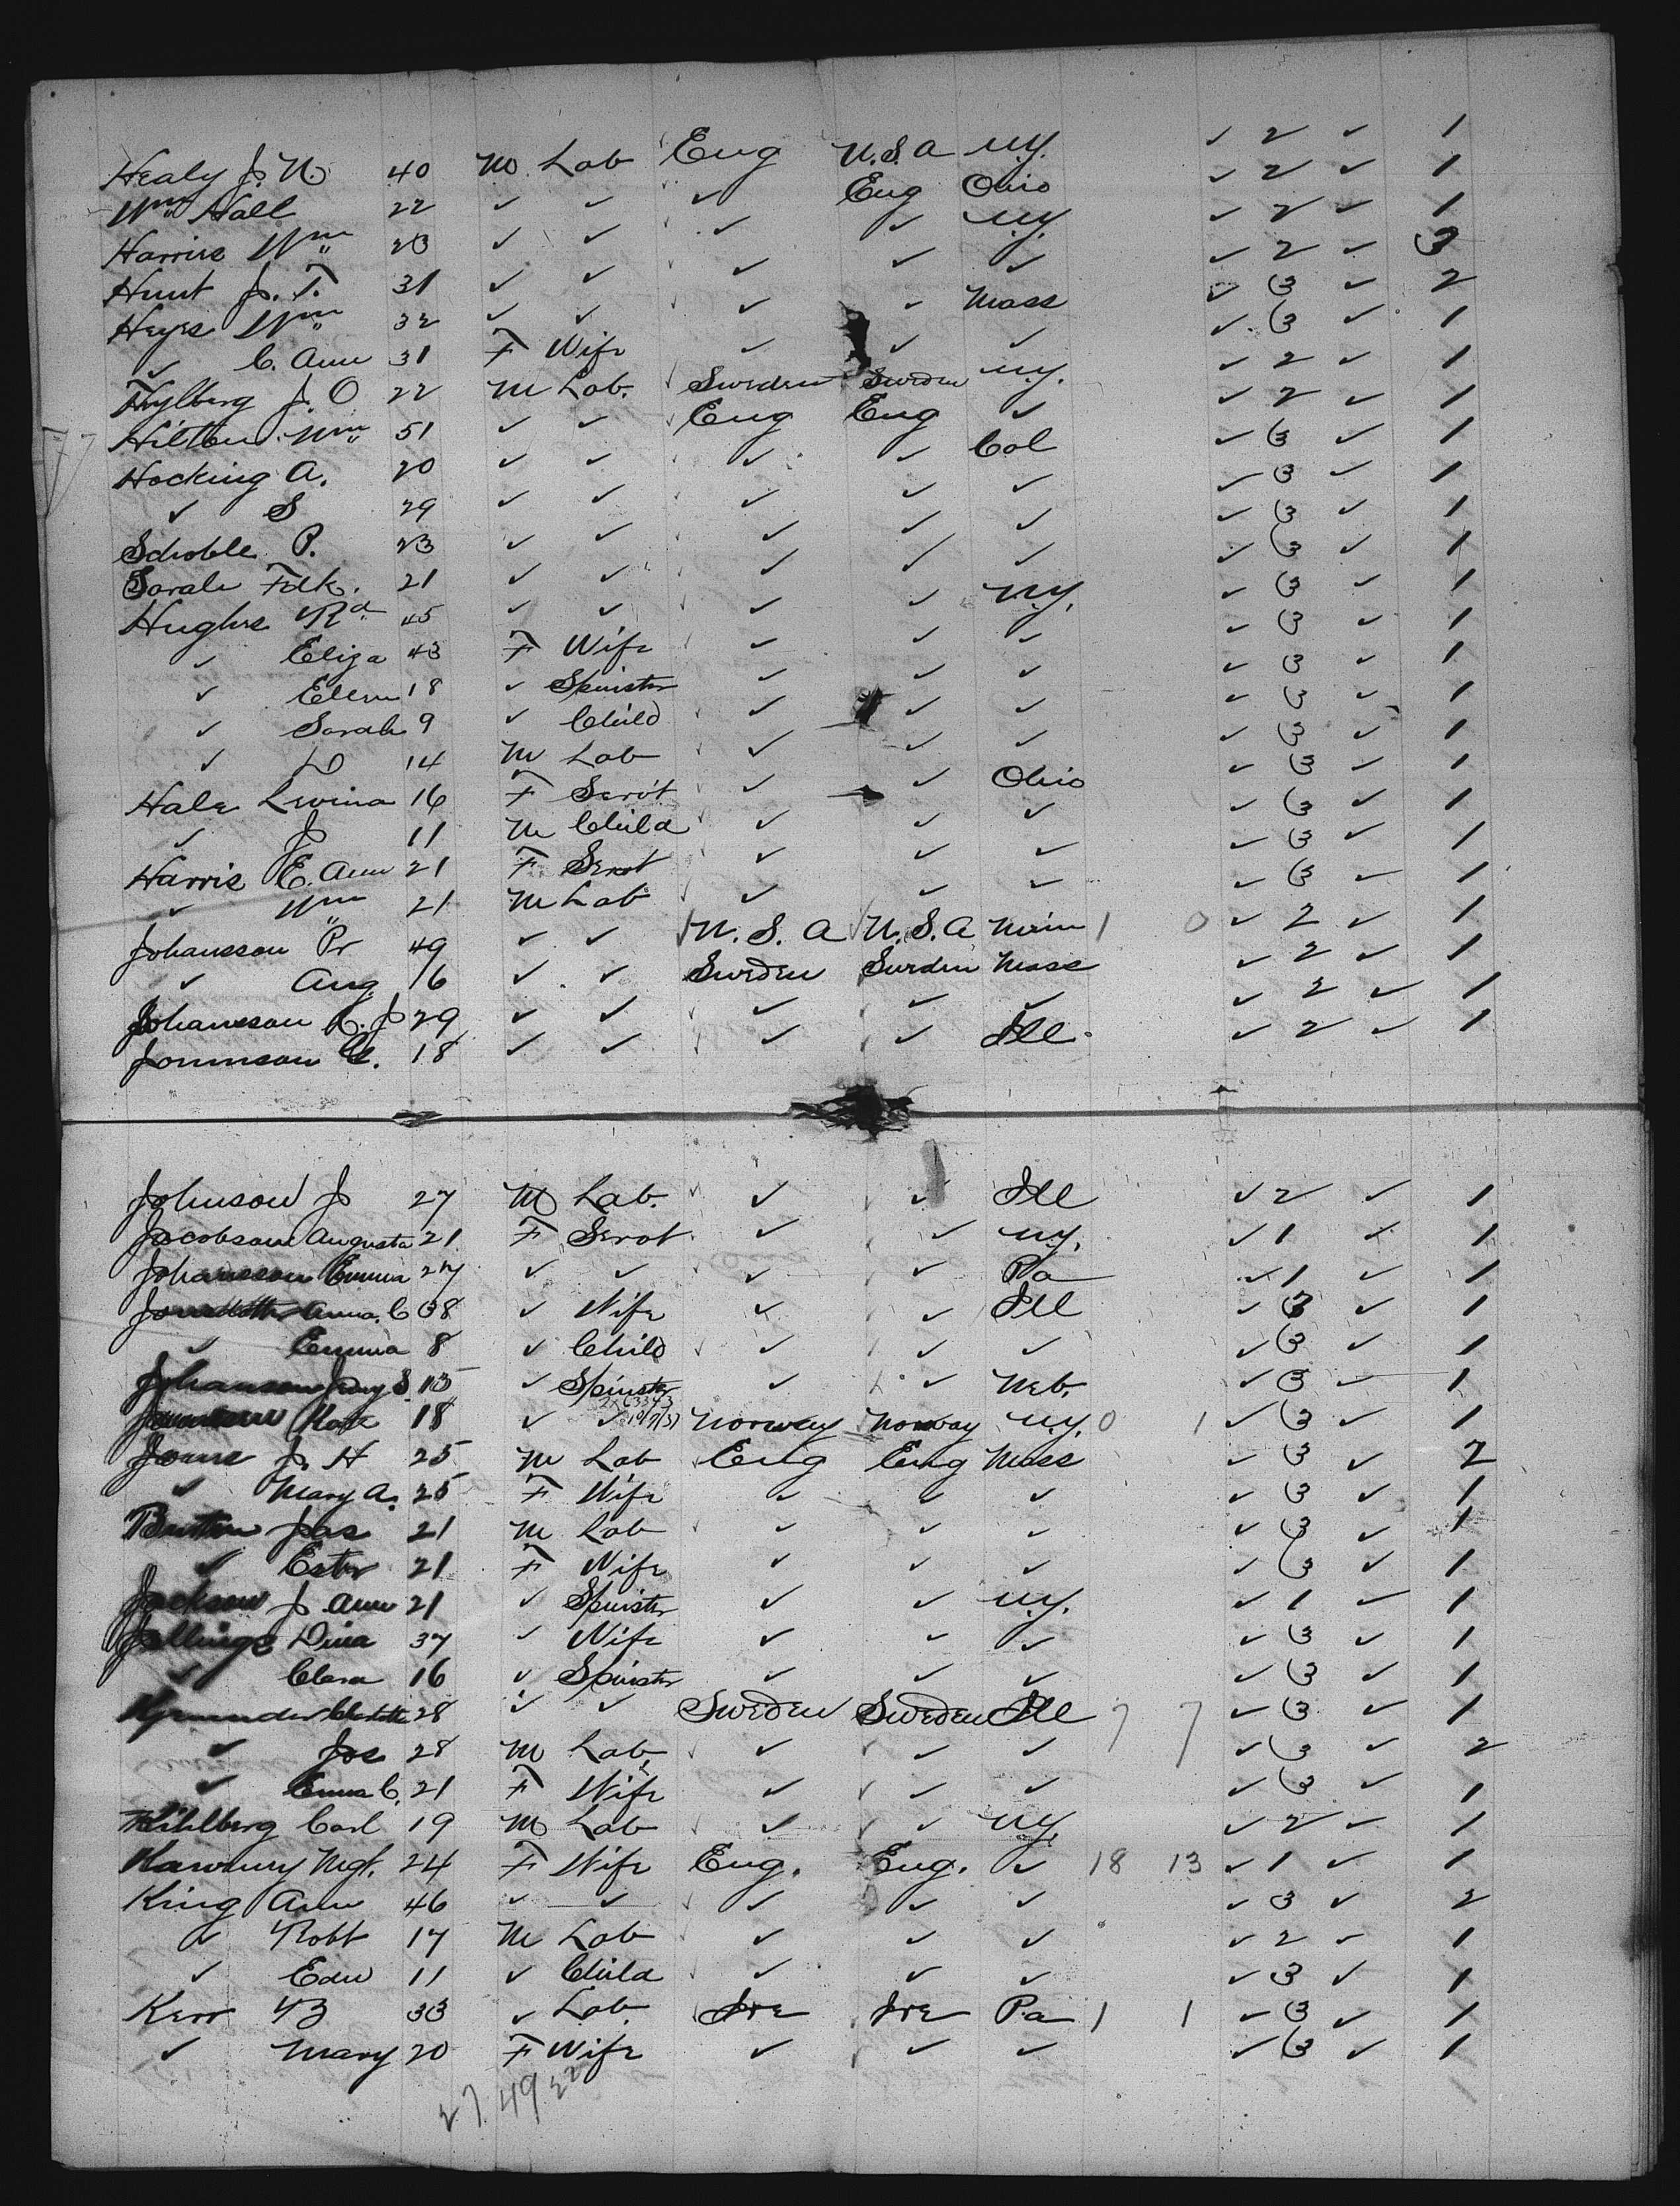 Healy J. N. 40 M Lab Eng U.S.A N.Y. ✓ 2 ✓ 1
Wm Hall 22 ✓ ✓ ✓ Eng Ohio ✓ 2 ✓ 1
Harris Wm 23 ✓ ✓ ✓ ✓ N.Y. ✓ 2 ✓ 1
Hunt J. T. 31 ✓ ✓ ✓ ✓ ✓ ✓ 2 ✓ 3
Heyes Wm 32 ✓ ✓ ✓ ✓ Mass ✓ 3 ✓ 2
✓ C. Ann 31 F Wife ✓ ✓ ✓ ✓ 3 ✓ 1
J. O 22 M Lab. Sweden Sweden N.Y. ✓ 2 ✓ 1
Hilton Wm 51 ✓ ✓ Eng Eng ✓ ✓ 2 ✓ 1
Hocking A. 20 ✓ ✓ ✓ ✓ Col ✓ 3 ✓ 1
✓ S 29 ✓ ✓ ✓ ✓ ✓ ✓ 3 ✓ 1
P. 23 ✓ ✓ ✓ ✓ ✓ ✓ 3 ✓ 1
Fredk. 21 ✓ ✓ ✓ ✓ ✓ ✓ 3 ✓ 1
Hughes Rd 45 ✓ ✓ ✓ ✓ N.Y. ✓ 3 ✓ 1
✓ Eliza 43 F Wife ✓ ✓ ✓ ✓ 3 ✓ 1
✓ Ellen 18 ✓ Spinster ✓ ✓ ✓ ✓ 3 ✓ 1
✓ Sarah 9 ✓ Child ✓ ✓ ✓ ✓ 3 ✓ 1
✓ D 14 M Lab ✓ ✓ ✓ ✓ 3 ✓ 1
Hale Levina 16 F Servt ✓ ✓ Ohio ✓ 3 ✓ 1
✓ J 11 M Child ✓ ✓ ✓ ✓ 3 ✓ 1
Harris E. Ann 21 F Servt ✓ ✓ ✓ ✓ 3 ✓ 1
✓ Wm 21 M Lab ✓ ✓ ✓ ✓ 3 ✓ 1
Johansson Pr 49 ✓ ✓ U.S.A U.S.A Minn 1 0 ✓ 2 ✓ 1
✓ Aug 16 ✓ ✓ Sweden Sweden Mass ✓ 2 ✓ 1
Johansson J 29 ✓ ✓ ✓ ✓ ✓ ✓ 2 ✓ 1
18 ✓ ✓ ✓ ✓ Ill. ✓ 2 ✓ 1
Johnson J 27 M Lab. ✓ ✓ Ill ✓ 2 ✓ 1
Jacobson Augusta 21 F Servt ✓ ✓ N.Y. ✓ 1 ✓ 1
Johansson Emma 27 ✓ ✓ ✓ ✓ Pa ✓ 1 ✓ 1
Anna. C 38 ✓ Wife ✓ ✓ Ill ✓ 3 ✓ 1
✓ Emma 8 ✓ Child ✓ ✓ ✓ ✓ 3 ✓ 1
Johanson S 15 ✓ Spinster ✓ ✓ Neb. ✓ 3 ✓ 1
18 ✓ ✓ Norway Norway N.Y. 0 1 ✓ 3 ✓ 1
J. H 25 M Lab Eng Eng Mass ✓ 3 ✓ 2
✓ Mary A. 25 F Wife ✓ ✓ ✓ ✓ 3 ✓ 1
Jas 21 M Lab ✓ ✓ ✓ ✓ 3 ✓ 1
✓ Ester 21 F Wife ✓ ✓ ✓ ✓ 3 ✓ 1
Jackson J. Ann 21 ✓ Spinster ✓ ✓ N.Y. ✓ 1 ✓ 1
Jellings Dina 37 ✓ Wife ✓ ✓ ✓ ✓ 3 ✓ 1
✓ Clara 16 ✓ Spinster ✓ ✓ ✓ ✓ 3 ✓ 1
28 ✓ ✓ Sweden Sweden Ill 7 7 ✓ 3 ✓ 1
✓ Jos 28 M Lab ✓ ✓ ✓ ✓ 3 ✓ 2
✓ Emma C. 21 F Wife ✓ ✓ ✓ ✓ 3 ✓ 1
Kihlberg Carl 19 M Lab ✓ ✓ N.Y. ✓ 2 ✓ 1
Mgt. 24 F Wife Eng. Eng. ✓ 18 13 ✓ 1 ✓ 1
King Ann 46 ✓ ✓ ✓ ✓ ✓ ✓ 3 ✓ 2
✓ Robt 17 M Lab ✓ ✓ ✓ ✓ 2 ✓ 1
✓ Edw 11 ✓ Child ✓ ✓ ✓ ✓ 3 ✓ 1
Kerr 33 ✓ Lab. Ire Ire Pa 1 1 ✓ 3 ✓ 1
✓ Mary 20 F Wife ✓ ✓ ✓ ✓ 3 ✓ 1
27. 49 22